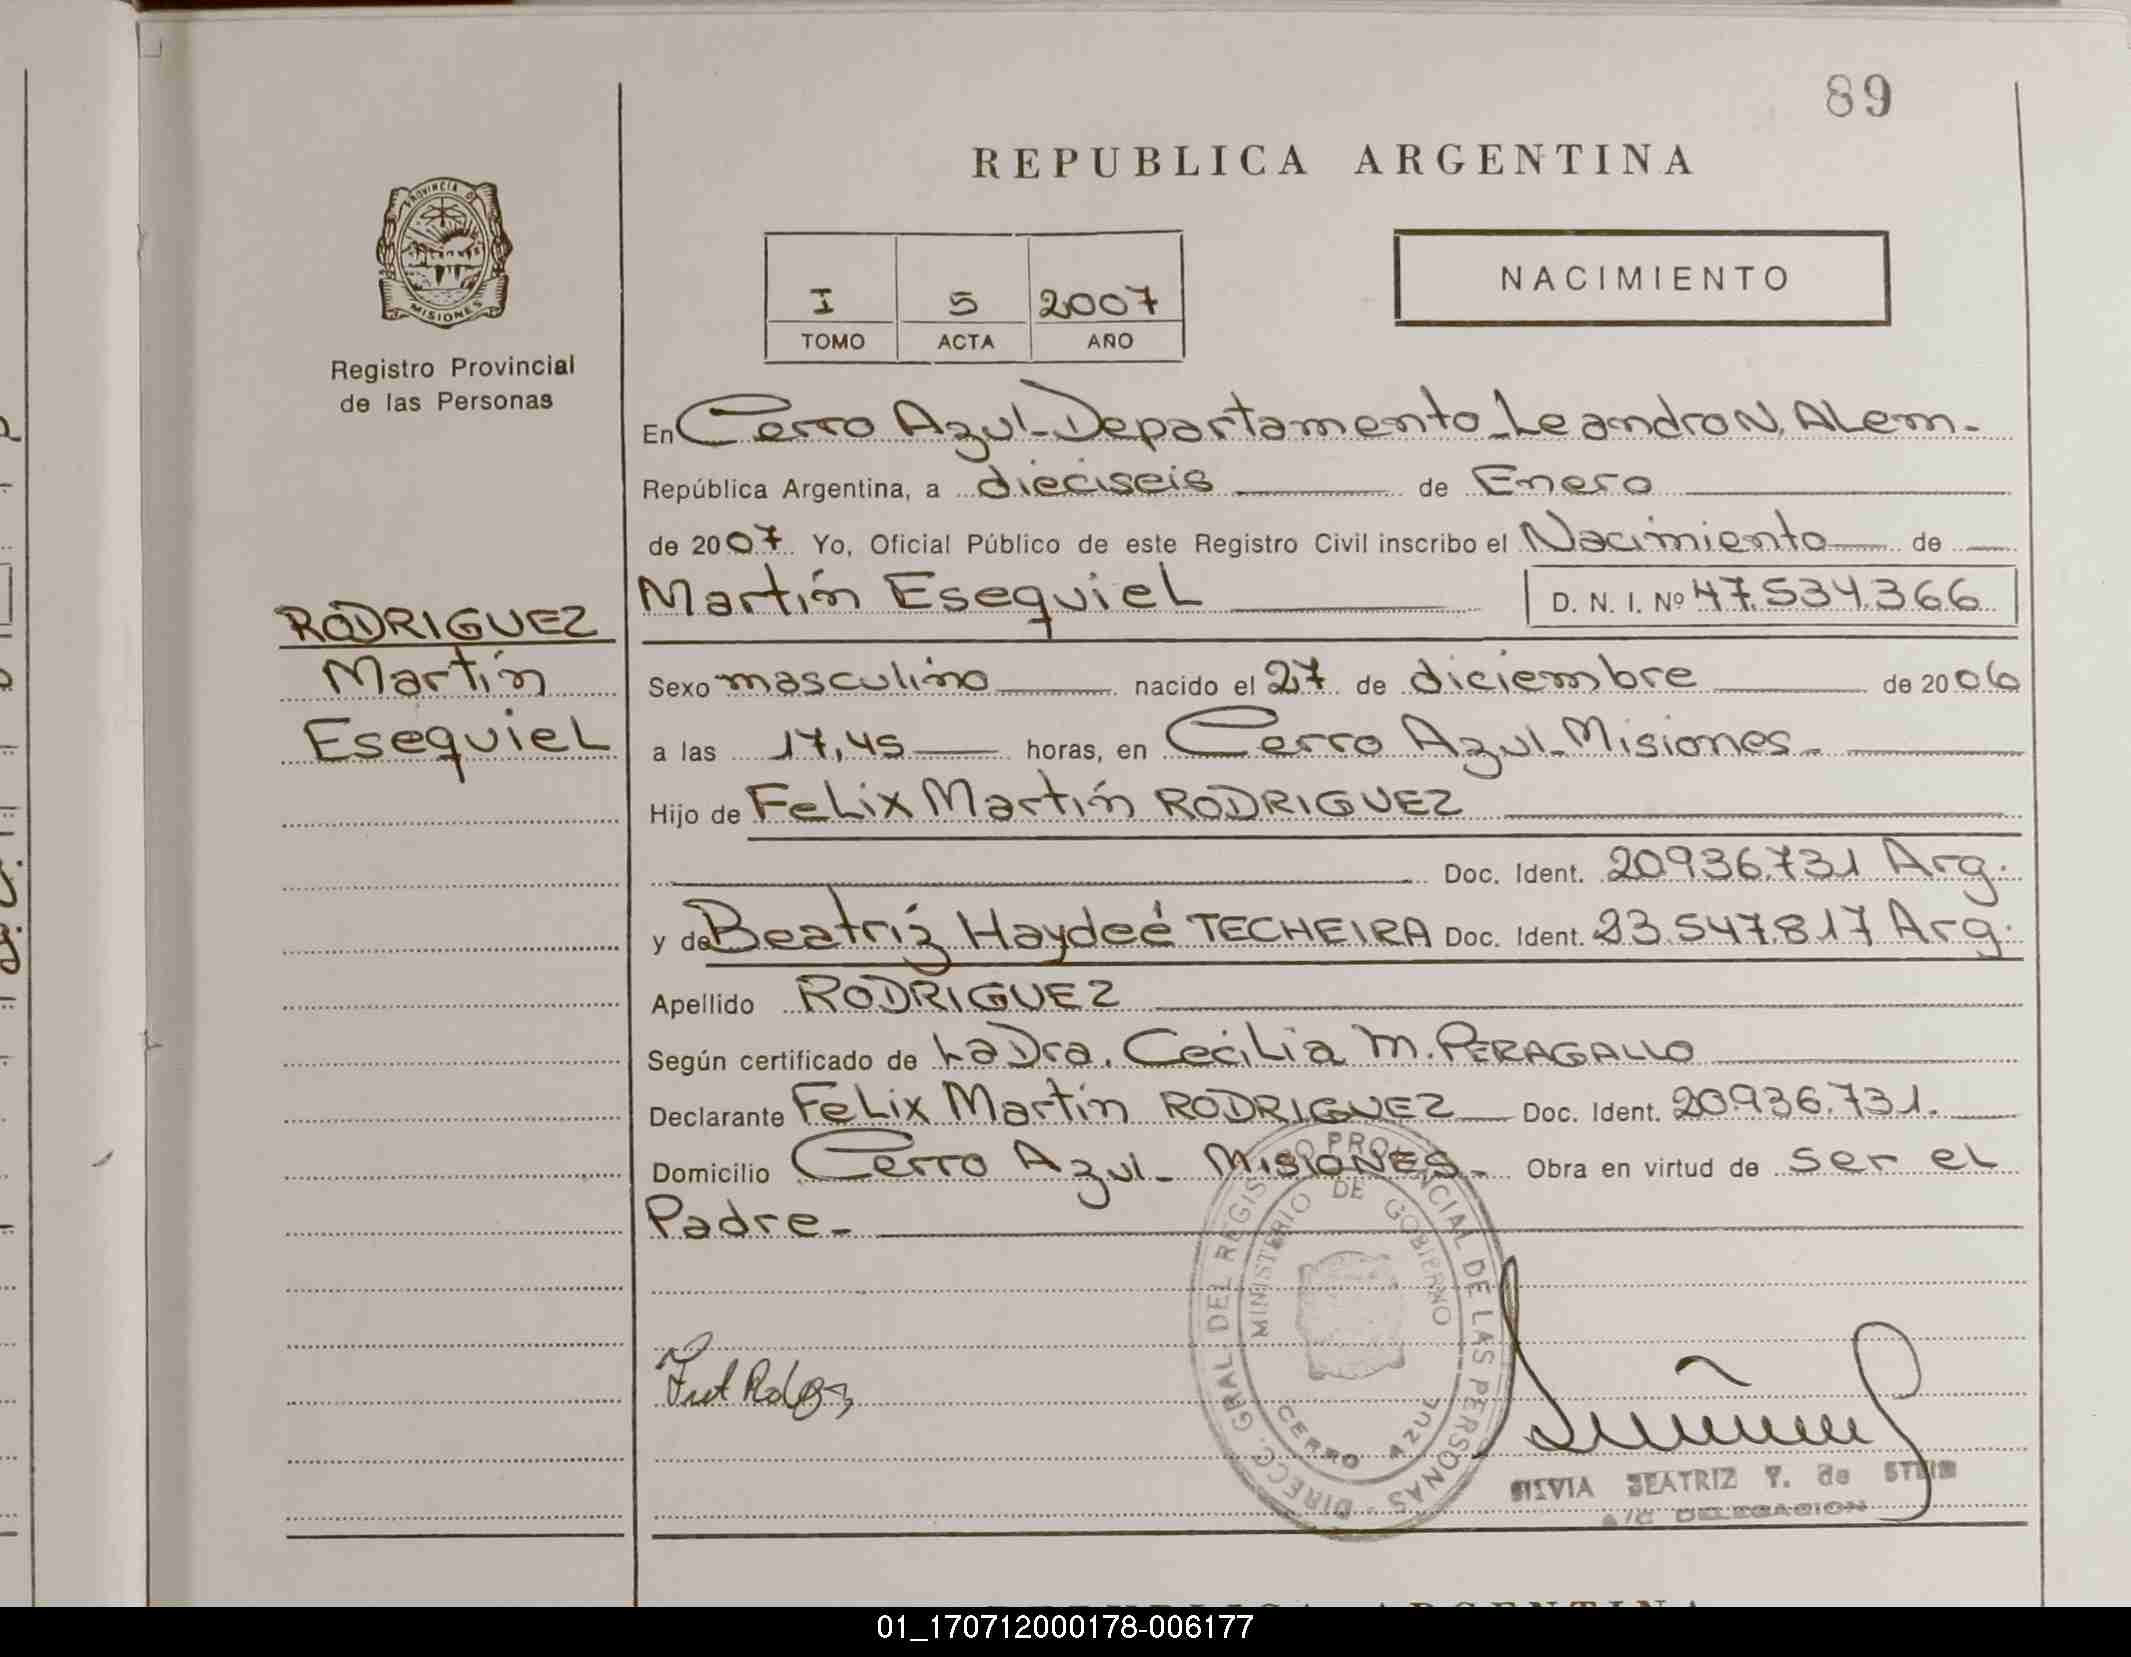 89
REPUBLICA ARGENTINA
PROVINCIA DE
MISIONES
Registro Provincial
de las Personas
NACIMIENTO
I 5 2007
TOMO ACTA AÑO
En Cerro Azul-Departamento-Leandro N. ALem-
República Argentina, a dieciseis de Enero
de 2007 Yo, Oficial Público de este Registro Civil inscribo el Nacimiento de
Martín EsequieL D. N. I. Nº 47.534.366
RODRIGUEZ
Martín
EsequieL
Sexo masculino nacido el 27 de diciembre de 2006
a las 17,45 horas, en Cerro Azul-Misiones-
Hijo de FeLix Martín RODRIGUEZ
Doc. Ident. 20.936.731 Arg.
y de Beatríz Haydeé TECHEIRA Doc. Ident. 23.547.817 Arg.
Apellido RODRIGUEZ
Según certificado de La Dra. CeciLia M. PERAGALLO
Declarante FeLix Martín RODRIGUEZ Doc. Ident. 20.936.731.
Domicilio Cerro Azul- MISIONES- Obra en virtud de ser eL
Padre-
DIRECC. GRAL DEL REGISTRO PROVINCIAL DE LAS PERSONAS -
MINISTERIO DE GOBIERNO
CERRO AZUL
SILVIA BEATRIZ Y. de
A/C DELEGACION
REPUBLICA ARGENTINA
01_170712000178-006177